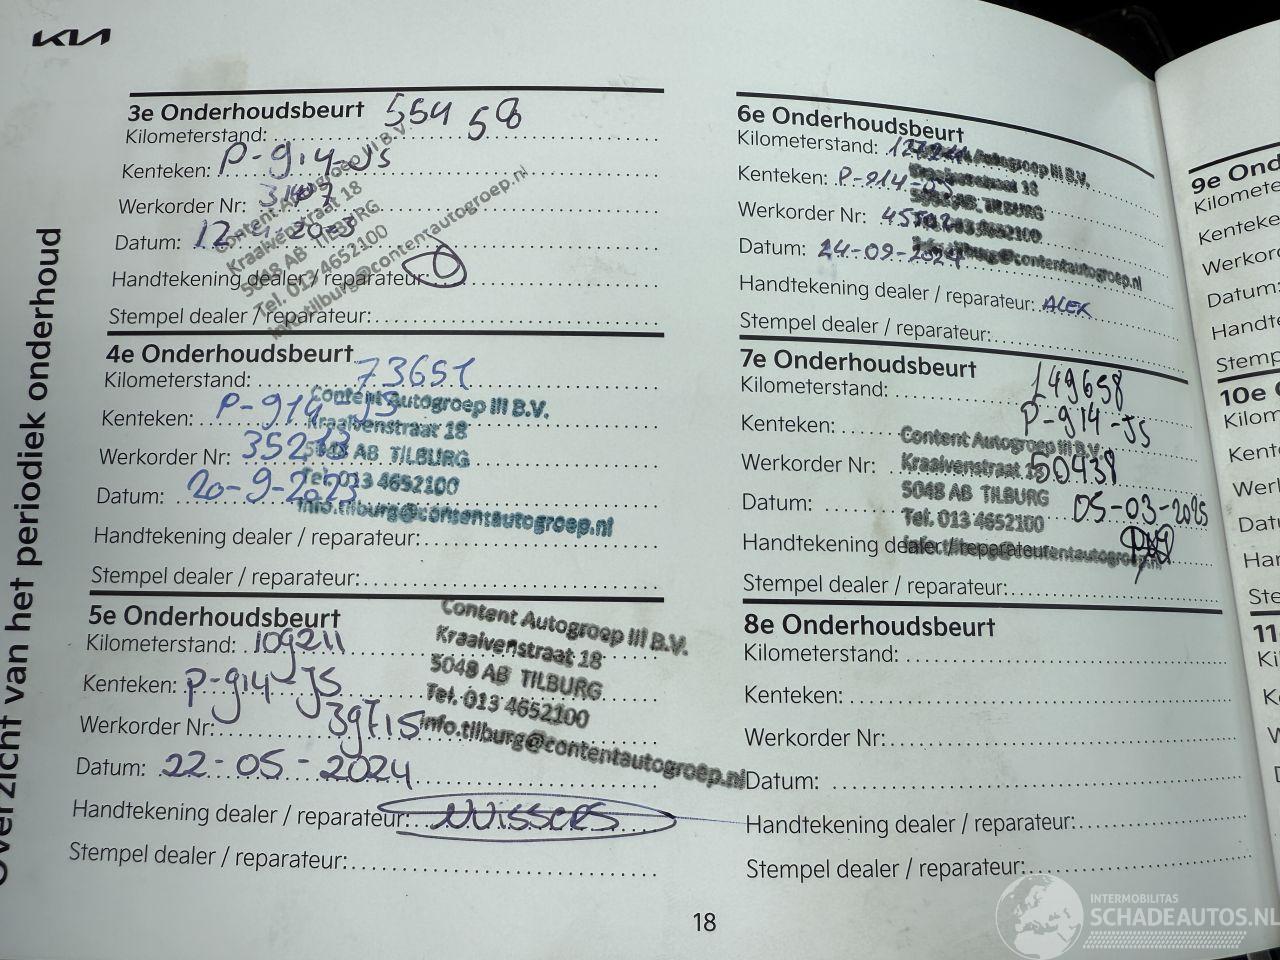 KIA
Overzicht van het periodiek onderhoud
3e Onderhoudsbeurt 55458
Kilometerstand:
Kenteken: P-914-JS
Werkorder Nr:
Datum: 12-4-2023
Handtekening dealer / reparateur:
Stempel dealer / reparateur:
Content Autogroep III B.V.
Kraaivenstraat 18
5048 AB TILBURG
Tel. 013 4652100
info.tilburg@contentautogroep.nl
4e Onderhoudsbeurt
Kilometerstand: 73651
Kenteken: P-914-JS
Werkorder Nr: 35213
Datum: 20-9-2023
Handtekening dealer / reparateur:
Stempel dealer / reparateur:
Content Autogroep III B.V.
Kraaivenstraat 18
5048 AB TILBURG
Tel. 013 4652100
info.tilburg@contentautogroep.nl
5e Onderhoudsbeurt
Kilometerstand: 109211
Kenteken: P-914-JS
Werkorder Nr: 39715
Datum: 22-05-2024
Handtekening dealer / reparateur: Nuissers
Stempel dealer / reparateur:
Content Autogroep III B.V.
Kraaivenstraat 18
5048 AB TILBURG
Tel. 013 4652100
info.tilburg@contentautogroep.nl
6e Onderhoudsbeurt
Kilometerstand:
Kenteken: P-914-JS
Werkorder Nr:
Datum: 24-09-2024
Handtekening dealer / reparateur: ALEX
Stempel dealer / reparateur:
Content Autogroep III B.V.
Kraaivenstraat 18
5048 AB TILBURG
Tel. 013 4652100
info.tilburg@contentautogroep.nl
7e Onderhoudsbeurt
Kilometerstand: 149658
Kenteken: P-914-JS
Werkorder Nr: 50438
Datum: 05-03-2025
Handtekening dealer / reparateur:
Stempel dealer / reparateur:
Content Autogroep III B.V.
Kraaivenstraat 18
5048 AB TILBURG
Tel. 013 4652100
info.tilburg@contentautogroep.nl
8e Onderhoudsbeurt
Kilometerstand:
Kenteken:
Werkorder Nr:
Datum:
Handtekening dealer / reparateur:
Stempel dealer / reparateur:
18
9e Ond
Kilomete
Kenteke
Werkord
Datum:
Handte
Stemp
10e
Kilom
Kent
Werk
Datu
Han
Ste
11
Ki
INTERMOBILITAS
SCHADEAUTOS.NL